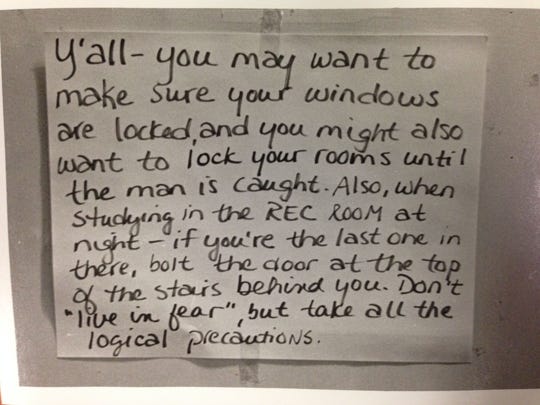 Y'all - you may want to
make sure your windows
are locked, and you might also
want to lock your rooms until
the man is caught. Also, when
studying in the REC ROOM at
night - if you're the last one in
there, bolt the door at the top
of the stairs behind you. Don't
"live in fear", but take all the
logical precautions.